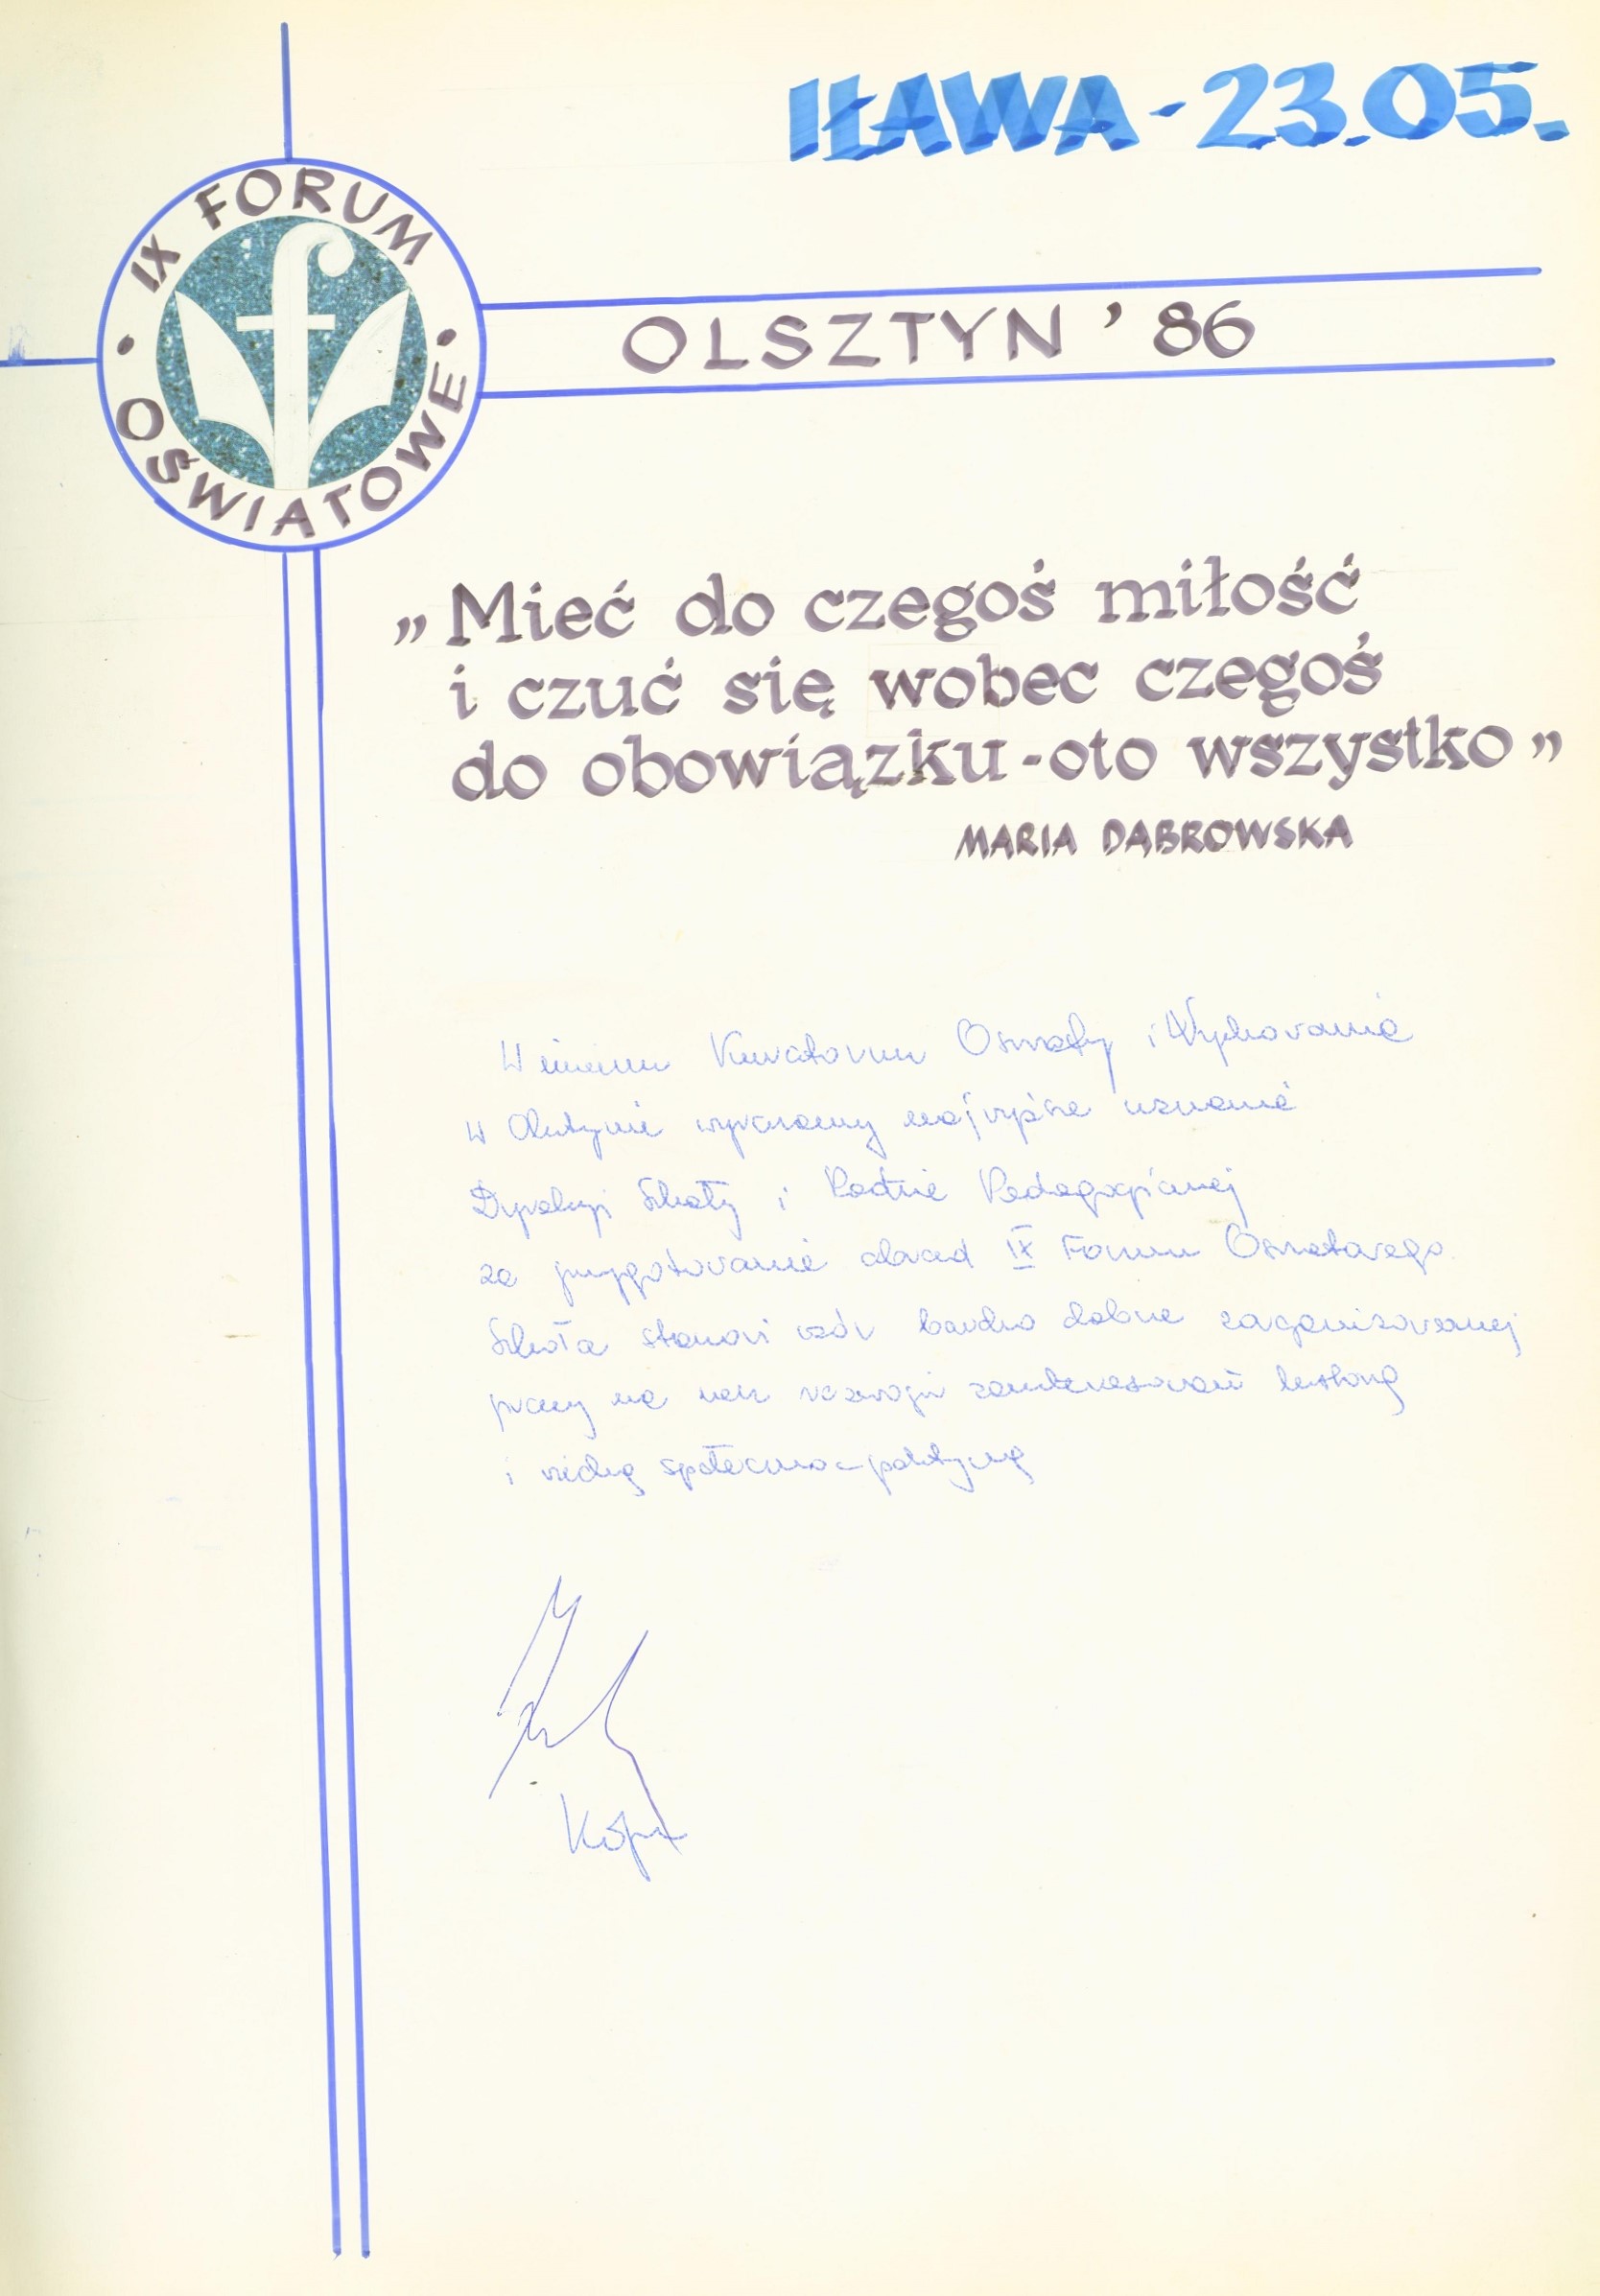 IŁAWA - 23.05.
IX FORUM
OŚWIATOWE
OLSZTYN '86
„Mieć do czegoś miłość
i czuć się wobec czegoś
do obowiązku - oto wszystko”
MARIA DĄBROWSKA
W imieniu Kuratorium Oświaty i Wychowania
w Olsztynie wyrażamy najwyższe uznanie
Dyrekcji Szkoły i Radzie Pedagogicznej
za przygotowanie obrad IX Forum Oświatowego.
Szkoła stanowi wzór bardzo dobrze zorganizowanej
pracy na rozwoju zainteresowań historią
i wiedzą społeczno-polityczną